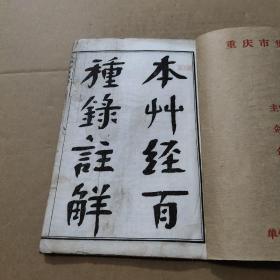 本艸经百
種錄註解
重庆市